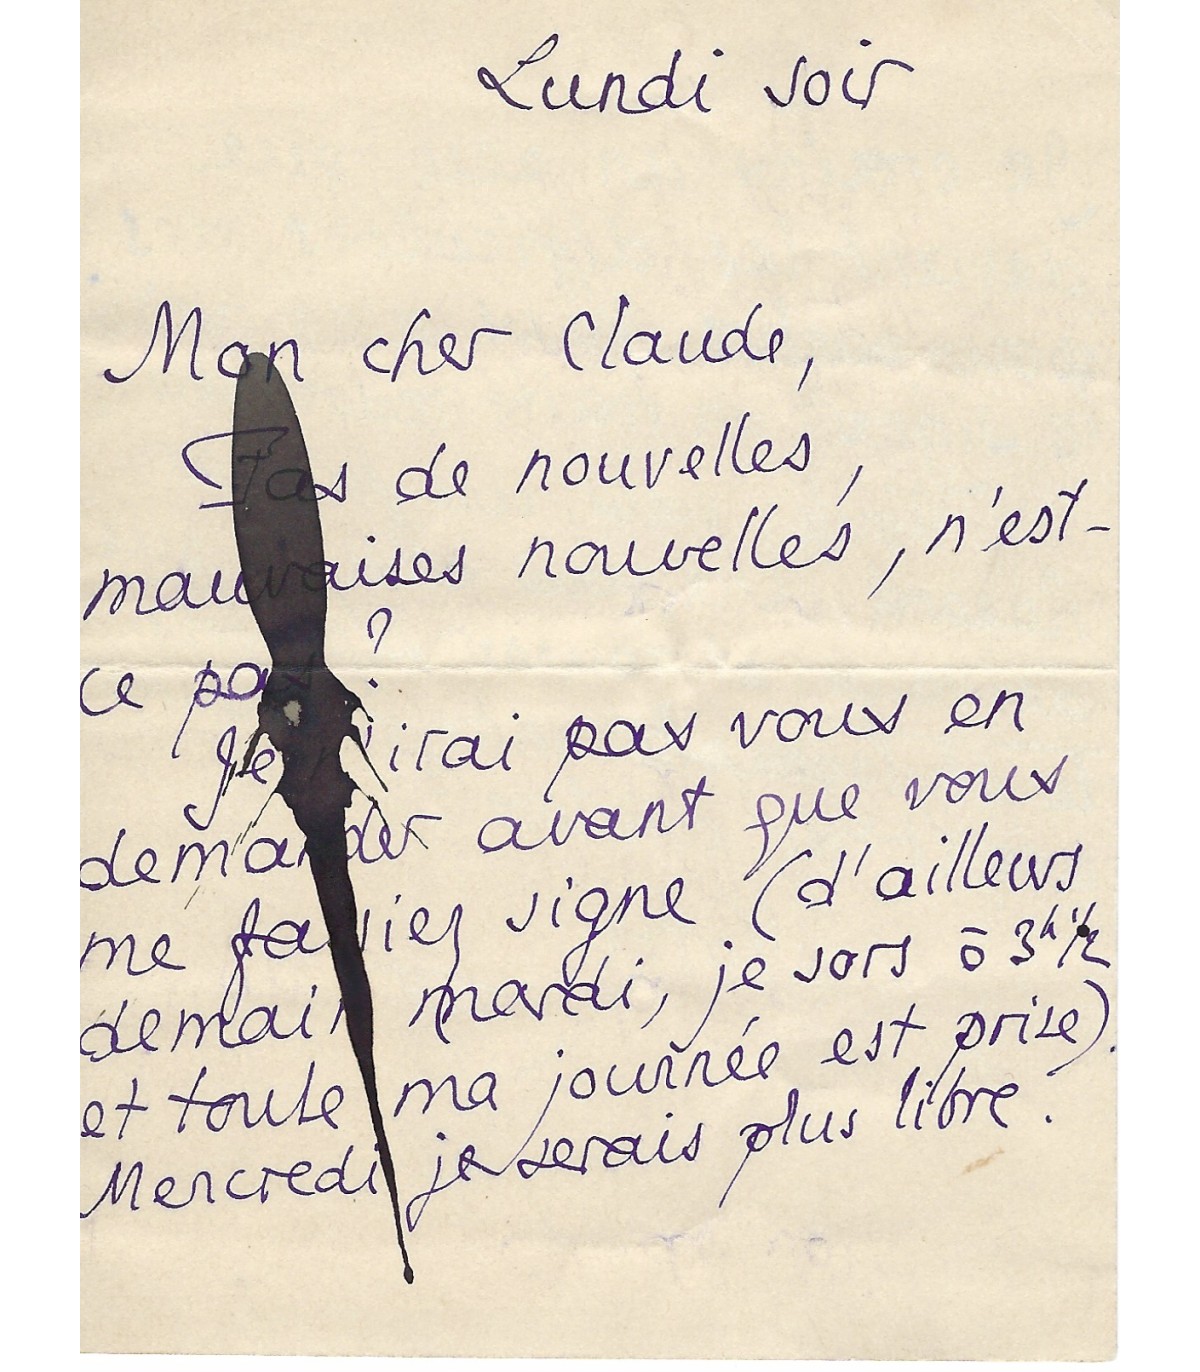 Lundi soir
Mon cher Claude,
Pas de nouvelles,
mauvaises nouvelles, n'est-
ce pas ?
Je n'irai pas vous en
demander avant que vous
me fassiez signe (d'ailleurs
demain mardi, je sors à 3h 1/2
et toute ma journée est prise).
Mercredi je serais plus libre.